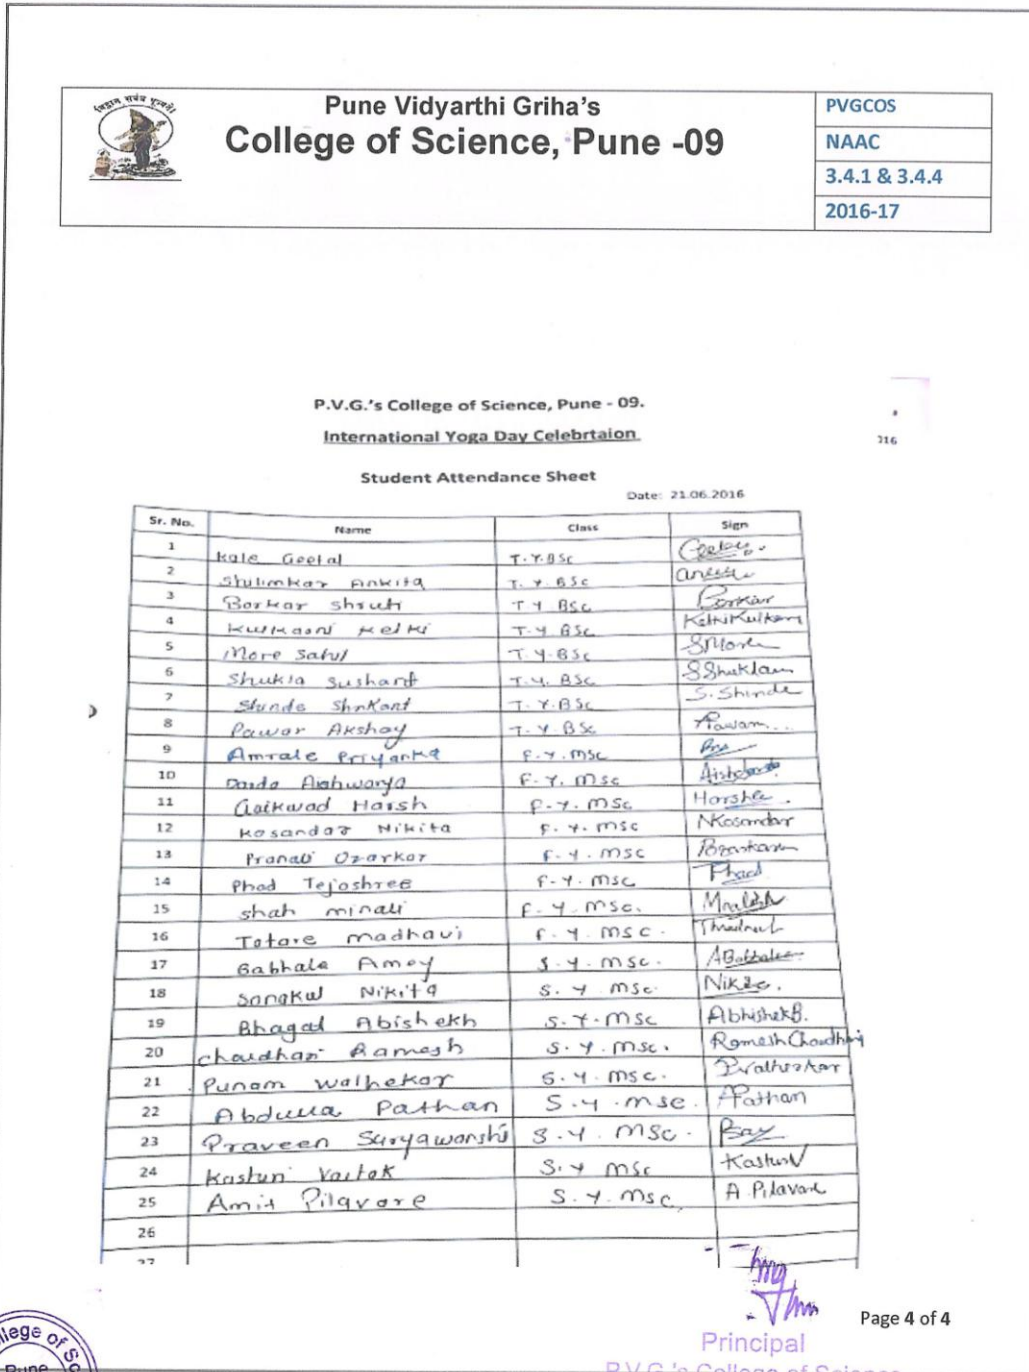 विद्वान सर्वत्र पूज्यते
Pune Vidyarthi Griha's
College of Science, Pune -09
PVGCOS
NAAC
3.4.1 & 3.4.4
2016-17
P.V.G.'s College of Science, Pune - 09.
International Yoga Day Celebrtaion
016
Student Attendance Sheet
Date: 21.06.2016
Sr. No. Name Class Sign
1 Kale Geetal T.Y.BSc
2 Shilimkar Ankita T.Y.BSc
3 Borkar Shruti T.Y BSc Borkar
4 Kulkarni Ketki T.Y BSc Ketki Kulkarni
5 More Satul T.Y.BSc SMore
6 Shukla Sushant T.Y. BSc SShukla
7 Shinde Shrikant T.Y.BSc S. Shinde
8 Pawar Akshay T.Y.BSc
9 Amrale Priyanka F.Y.MSc
10 Aishwarya F.Y.MSc
11 Gaikwad Harsh F.Y.MSc
12 Kosandar Nikita F.Y.MSc NKosandar
13 Pranali Ozarkar F.Y.MSc
14 Phad Tejashree F.Y.MSc Phad
15 Shah minali F.Y.MSc.
16 Totare madhavi F.Y.MSc.
17 Babhale Amey S.Y.MSc. ABabhale
18 Sangkul Nikita S.Y MSc.
19 Bhagat Abishekh S.Y.MSc AbhishekB.
20 Chaudhari Ramesh S.Y.MSc. Ramesh Chaudhari
21 Punam Walhekar S.Y.MSc. PWalhekar
22 Abdulla Pathan S.Y.MSc. APathan
23 Praveen Suryawanshi S.Y.MSc.
24 Kasturi Vartak S.Y MSc KasturiV
25 Amit Pilavare S.Y.MSc. A Pilavare
26
27
Page 4 of 4
Principal
P.V.G.'s College of Science
College of Sc
Pune